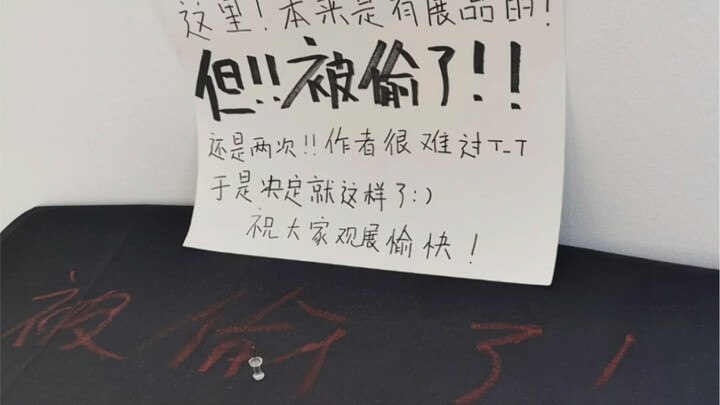 这里！本来是有展品的！
但!!被偷了!!
还是两次!!作者很难过T_T
于是决定就这样了:)
祝大家观展愉快！
被偷了！